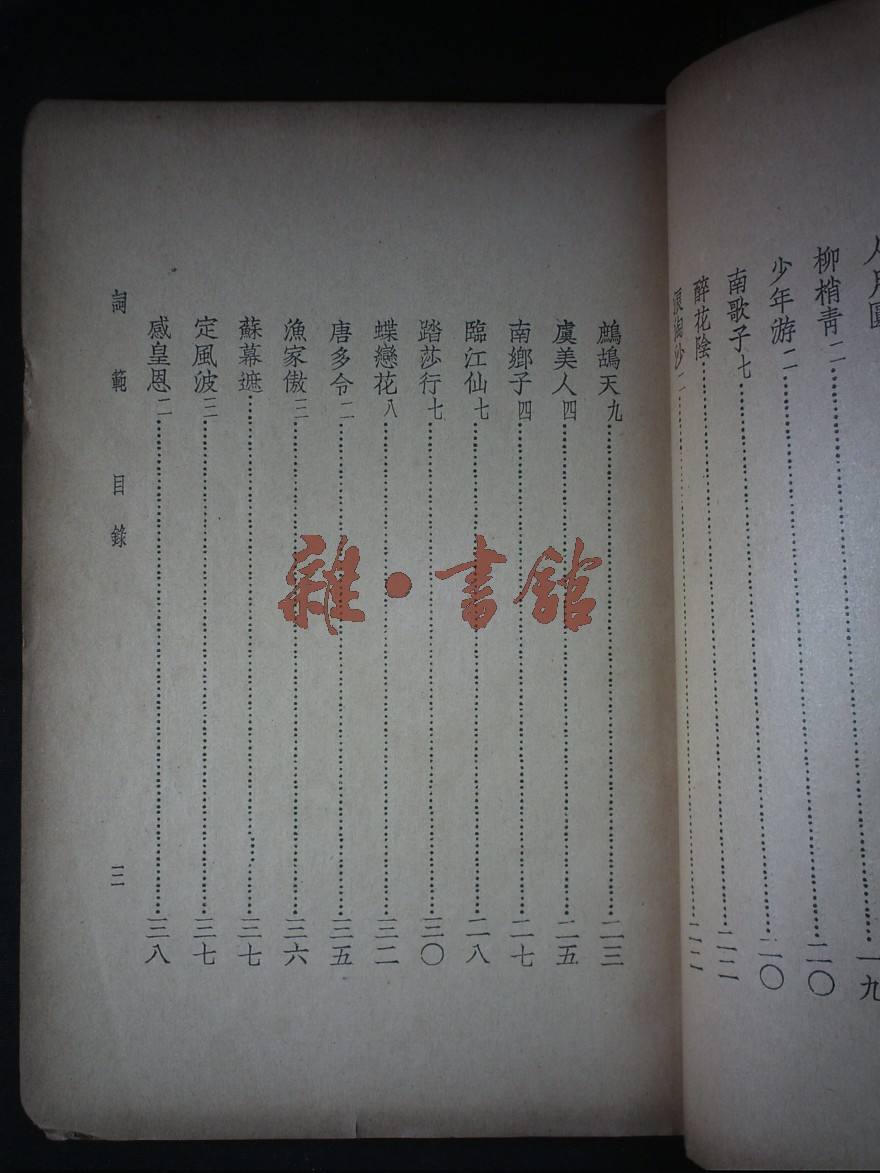 柳梢青二⋯⋯二〇
少年游二⋯⋯二〇
南歌子七⋯⋯二二
醉花陰⋯⋯二二
鷓鴣天九⋯⋯二三
虞美人四⋯⋯二五
南鄉子四⋯⋯二七
臨江仙七⋯⋯二八
踏莎行七⋯⋯三〇
蝶戀花八⋯⋯三二
唐多令二⋯⋯三五
漁家傲三⋯⋯三六
蘇幕遮⋯⋯三七
定風波三⋯⋯三七
感皇恩二⋯⋯三八
詞範 目錄 三
雜·書館